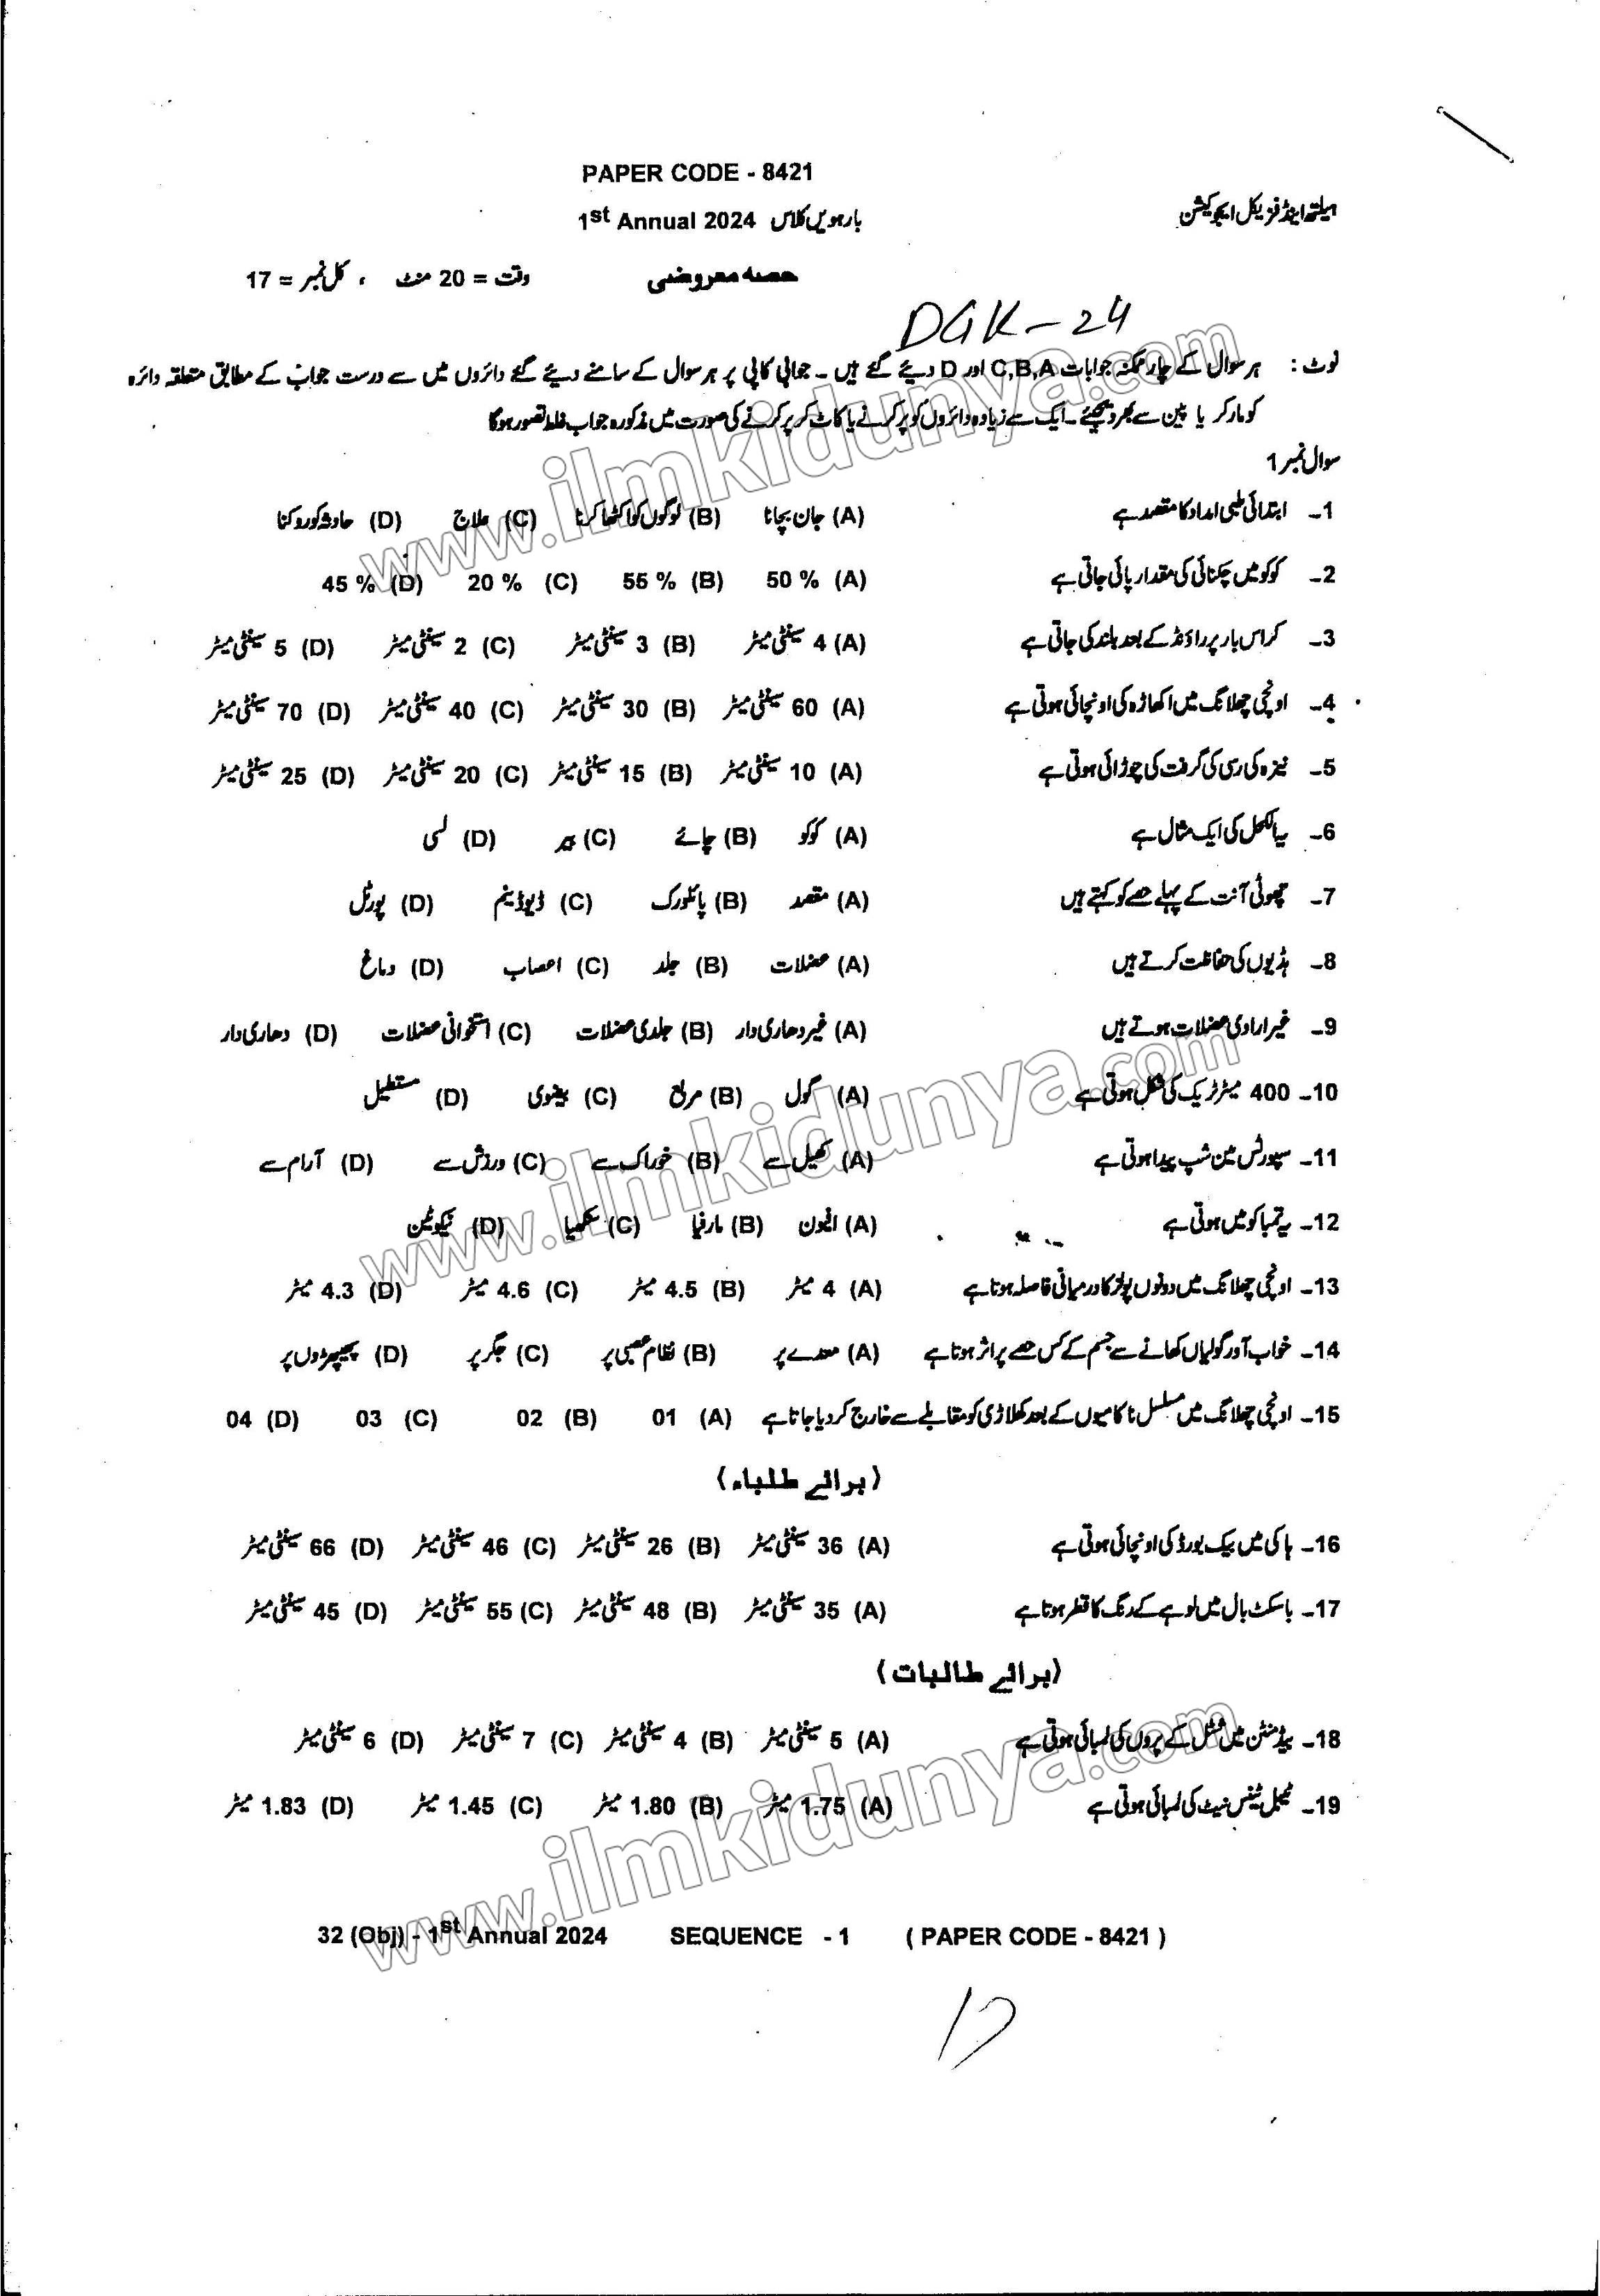 PAPER CODE - 8421
ہیلتھ اینڈ فزیکل ایجوکیشن
1st Annual 2024 بارہویں کلاس
حصہ معروضی
وقت = 20 منٹ ، کل نمبر = 17
DGK-24
نوٹ : ہر سوال کے چار ممکنہ جوابات C,B,A اور D دیئے گئے ہیں ۔ جوابی کاپی پر ہر سوال کے سامنے دیئے گئے دائروں میں سے درست جواب کے مطابق متعلقہ دائرہ
کو مارکر یا پین سے بھر دیجئے ۔ ایک سے زیادہ دائروں کو پر کرنے یا کاٹ کر پر کرنے کی صورت میں مذکورہ جواب غلط تصور ہوگا
سوال نمبر 1
1۔ ابتدائی طبی امداد کا مقصد ہے (A) جان بچانا (B) لوگوں کو اکٹھا کرنا (C) علاج (D) حادثہ کو روکنا
2۔ کوکو میں چکنائی کی مقدار پائی جاتی ہے (A) 50 % (B) 55 % (C) 20 % (D) 45 %
3۔ کراس بار ہر راؤنڈ کے بعد بلند کی جاتی ہے (A) 4 سینٹی میٹر (B) 3 سینٹی میٹر (C) 2 سینٹی میٹر (D) 5 سینٹی میٹر
4۔ اونچی چھلانگ میں اکھاڑہ کی اونچائی ہوتی ہے (A) 60 سینٹی میٹر (B) 30 سینٹی میٹر (C) 40 سینٹی میٹر (D) 70 سینٹی میٹر
5۔ نیزہ کی رسی کی گرفت کی چوڑائی ہوتی ہے (A) 10 سینٹی میٹر (B) 15 سینٹی میٹر (C) 20 سینٹی میٹر (D) 25 سینٹی میٹر
6۔ یہ الکحل کی ایک مثال ہے (A) کوکو (B) چائے (C) بیر (D) لسی
7۔ چھوٹی آنت کے پہلے حصے کو کہتے ہیں (A) مقصد (B) پائلورک (C) ڈیوڈینم (D) پورٹل
8۔ ہڈیوں کی حفاظت کرتے ہیں (A) عضلات (B) جلد (C) اعصاب (D) دماغ
9۔ غیر ارادی عضلات ہوتے ہیں (A) غیر دھاری دار (B) جلدی عضلات (C) استخوانی عضلات (D) دھاری دار
10۔ 400 میٹر ٹریک کی شکل ہوتی ہے (A) گول (B) مربع (C) بیضوی (D) مستطیل
11۔ سپورٹس مین شپ پیدا ہوتی ہے (A) کھیل سے (B) خوراک سے (C) ورزش سے (D) آرام سے
12۔ یہ تمباکو میں ہوتی ہے (A) افیون (B) مارفیا (C) سنکھیا (D) نیکوٹین
13۔ اونچی چھلانگ میں دونوں پولز کا درمیانی فاصلہ ہوتا ہے (A) 4 میٹر (B) 4.5 میٹر (C) 4.6 میٹر (D) 4.3 میٹر
14۔ خواب آور گولیاں کھانے سے جسم کے کس حصے پر اثر ہوتا ہے (A) معدے پر (B) نظام عصبی پر (C) جگر پر (D) پھیپھڑوں پر
15۔ اونچی چھلانگ میں مسلسل ناکامیوں کے بعد کھلاڑی کو مقابلے سے خارج کر دیا جاتا ہے (A) 01 (B) 02 (C) 03 (D) 04
(برائے طلباء)
16۔ ہاکی میں بیک بورڈ کی اونچائی ہوتی ہے (A) 36 سینٹی میٹر (B) 26 سینٹی میٹر (C) 46 سینٹی میٹر (D) 66 سینٹی میٹر
17۔ باسکٹ بال میں لوہے کے رنگ کا قطر ہوتا ہے (A) 35 سینٹی میٹر (B) 48 سینٹی میٹر (C) 55 سینٹی میٹر (D) 45 سینٹی میٹر
(برائے طالبات)
18۔ بیڈمنٹن میں شٹل کے پروں کی لمبائی ہوتی ہے (A) 5 سینٹی میٹر (B) 4 سینٹی میٹر (C) 7 سینٹی میٹر (D) 6 سینٹی میٹر
19۔ ٹیبل ٹینس نیٹ کی لمبائی ہوتی ہے (A) 1.75 میٹر (B) 1.80 میٹر (C) 1.45 میٹر (D) 1.83 میٹر
32 (Obj) - 1st Annual 2024 SEQUENCE - 1 ( PAPER CODE - 8421 )
www.ilmkidunya.com
www.ilmkidunya.com
www.ilmkidunya.com